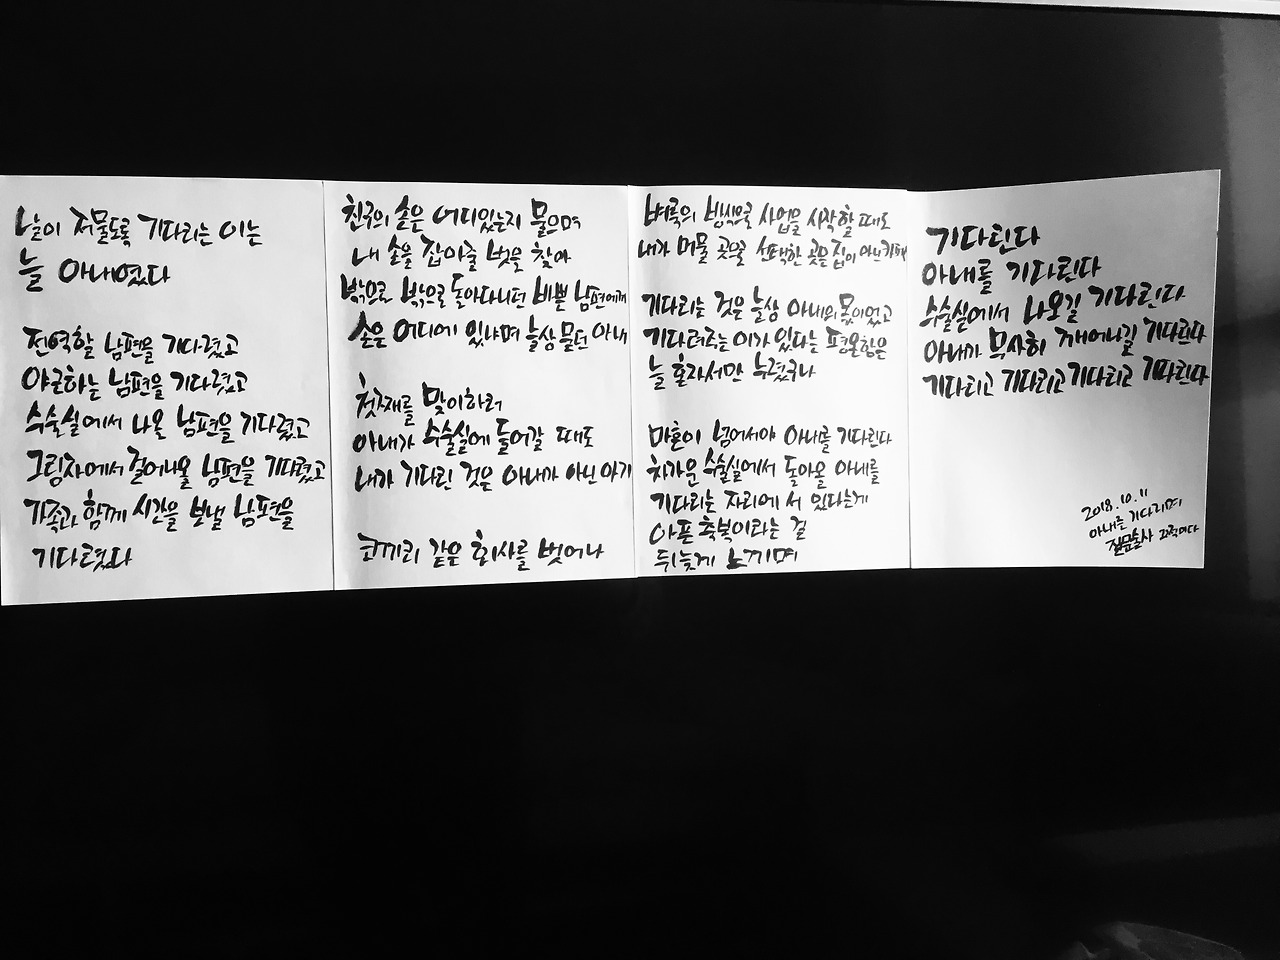 날이 저물도록 기다리는 이는
늘 아내였다
전역할 남편을 기다렸고
야근하는 남편을 기다렸고
수술실에서 나올 남편을 기다렸고
그림자에서 걸어나올 남편을 기다렸고
가족과 함께 시간을 보낼 남편을
기다렸다
친구의 손은 어디있는지 물으며
내 손을 잡아줄 벗을 찾아
밖으로 밖으로 돌아다니던 바쁜 남편에게
손은 어디에 있냐며 늘상 묻던 아내
첫째를 맞이하러
아내가 수술실에 들어갈 때도
내가 기다린 것은 아내가 아닌 아기
코끼리 같은 회사를 벗어나
벼룩의 방식으로 사업을 시작할 때도
내가 머물 곳으로 선택한 곳은 집이 아닌 카페
기다리는 것은 늘상 아내의 몫이었고
기다려주는 이가 있다는 평온함은
늘 혼자서만 누렸구나
마흔이 넘어서야 아내를 기다린다
차가운 수술실에서 돌아올 아내를
기다리는 자리에 서 있다는게
아픈 축복이라는 걸
뒤늦게 느끼며
기다린다
아내를 기다린다
수술실에서 나오길 기다린다
아내가 무사히 깨어나길 기다린다
기다리고 기다리고 기다리고 기다린다
2018.10.11
아내를 기다리며
질문술사